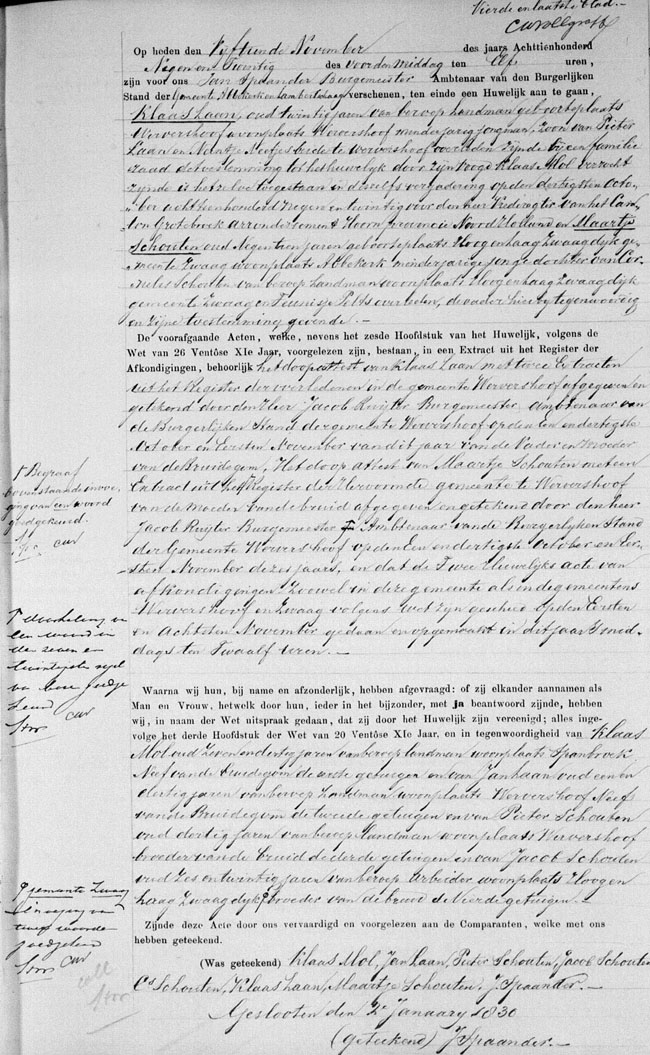 Vierde en laatste blad.
Op heden den Vyftiende November des jaars Achttienhonderd
Negen en Twintig des voor den middag ten Elf uren,
zijn voor ons Jan Spaander Burgemeester Ambtenaar van den Burgerlijken
Stand der Gemeente Abbekerk en Lambertschaag verschenen, ten einde een Huwelijk aan te gaan,
Klaas Laan, oud twintig jaren van beroep landman geboorteplaats
Wervershoof woonplaats Wervershoof minderjarig jongman, Zoon van Pieter
Laan en Neeltje Neefjes beide te Wervershoof overleden zijnde bij een familie
raad de toestemming tot het huwelyk door zijn voogd Klaas Mol verzocht
zynde is het zelve toegestaan in dezelfs vergadering op den dertigsten Octo-
ber achttienhonderd negen en twintig voor den heer Vrederegter van het Can-
ton Grotebroek Arrondissement Hoorn provincie Noord Holland en Maartje
Schouten oud Negentien jaren geboorteplaats Hoog en haag Zwaagdijk ge-
meente Zwaag woonplaats Abbekerk minderjarige jonge dochter van Cor-
nelis Schouten van beroep landman woonplaats Hoog en haag Zwaagdijk
gemeente Zwaag en overleden, de vader hierby tegenwoordig
en zijne toestemming gevende. —
De voorafgaande Acten, welke, nevens het zesde Hoofdstuk van het Huwelijk, volgens de
Wet van 26 Ventôse XIe Jaar, voorgelezen zijn, bestaan, in een Extract uit het Register der
Afkondigingen, behoorlijk het doopattest van Klaas Laan met twee Extracten
uit het Register der overledenen in de gemeente Wervershoof afgegeven en
getekend door den Heer Jacob Ruijter Burgemeester, Ambtenaar van
de Burgerlijken Stand der gemeente Wervershoof op den een en dertigste
October en Eersten November van dit jaar van de Vader en Moeder
van de Bruidegom, Het doop attest van Maartje Schouten met een
Extract uit het Register der Hervormde gemeente te Wervershoof
van de Moeder van de bruid afgegeven en getekend door den heer
Jacob Ruyter Burgemeester Ambtenaar van de Burgerlyken Stand
der Gemeente Wervershoof op den Een en dertigste October en Eer-
sten November dezes jaars, en dat de Twee Huwelijks acte van
afkondigingen Zoowel in deze gemeente als in de gemeentens
Wervershoof en Zwaag volgens wet zijn geschied op den Eersten
en Achtsten November gedaan en opgemaakt in dit jaar smid-
dags ten Twaalf Uren. —
Waarna wij hun, bij name en afzonderlijk, hebben afgevraagd: of zij elkander aannamen als
Man en Vrouw, hetwelk door hun, ieder in het bijzonder, met ja beantwoord zijnde, hebben
wij, in naam der Wet uitspraak gedaan, dat zij door het Huwelijk zijn vereenigd; alles inge-
volge het derde Hoofdstuk der Wet van 20 Ventôse XIe Jaar, en in tegenwoordigheid van Klaas
Mol oud Zeven en dertig jaren van beroep landman woonplaats Spanbroek
Neef van de bruidegom de eerste getuigen en van Jan Laan oud een en
dertig jaren van beroep Landman woonplaats Wervershoof Neef
van de Bruidegom de tweede getuigen en van Pieter Schouten
oud dertig jaren van beroep landman woonplaats Wervershoof
broeder van de bruid de derde getuigen en van Jacob Schouten
oud Zes en twintig jaren van beroep Arbeider woonplaats Hoog en
haag Zwaagdyk broeder van de bruid de Vierde getuigen. —
Zijnde deze Acte door ons vervaardigd en voorgelezen aan de Comparanten, welke met ons
hebben geteekend.
(Was geteekend) Klaas Mol, Jan Laan, Pieter Schouten, Jacob Schouten
Cs Schouten, Klaas Laan, Maartje Schouten. J. Spaander. —
Gesloten den 2e January 1830
(geteekend) J. Spaander. —
bovenstaande invoe-
ging van een woord
goedgekeurd.
een woord in
den zeven en
twintigsten regel
gemeente Zwaag
invoeging van
twee woorden
goedgekeurd